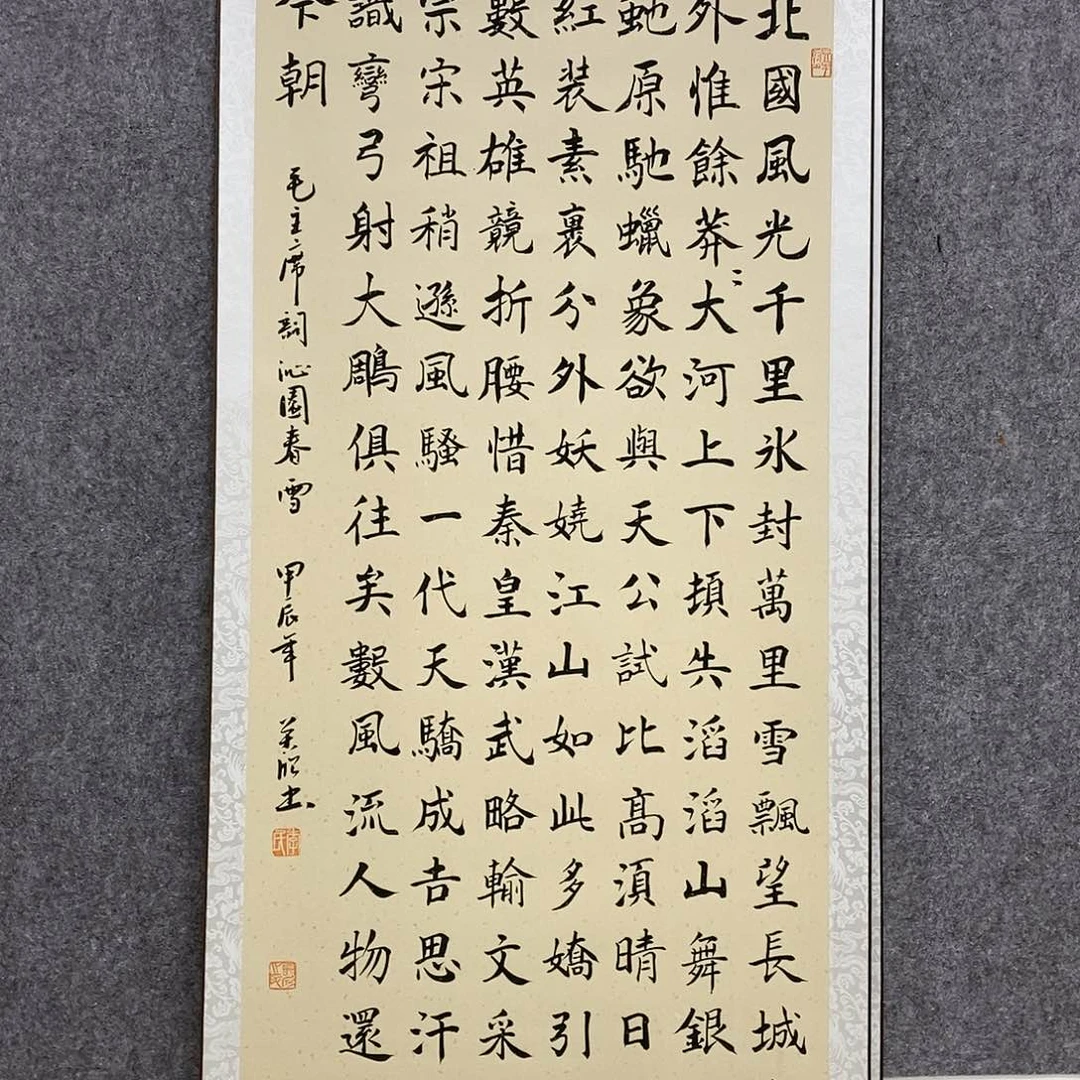 北國風光千里氷封萬里雪飄望長城
外惟餘莽〻大河上下頓失滔滔山舞銀
虵原馳蠟象欲與天公試比高須晴日
紅裝素裹分外妖嬈江山如此多嬌引
數英雄競折腰惜秦皇漢武略輸文采
宗宋祖稍遜風騷一代天驕成吉思汗
識彎弓射大鵰俱往矣數風流人物還
今朝
毛主席詞沁園春雪 甲辰年 书